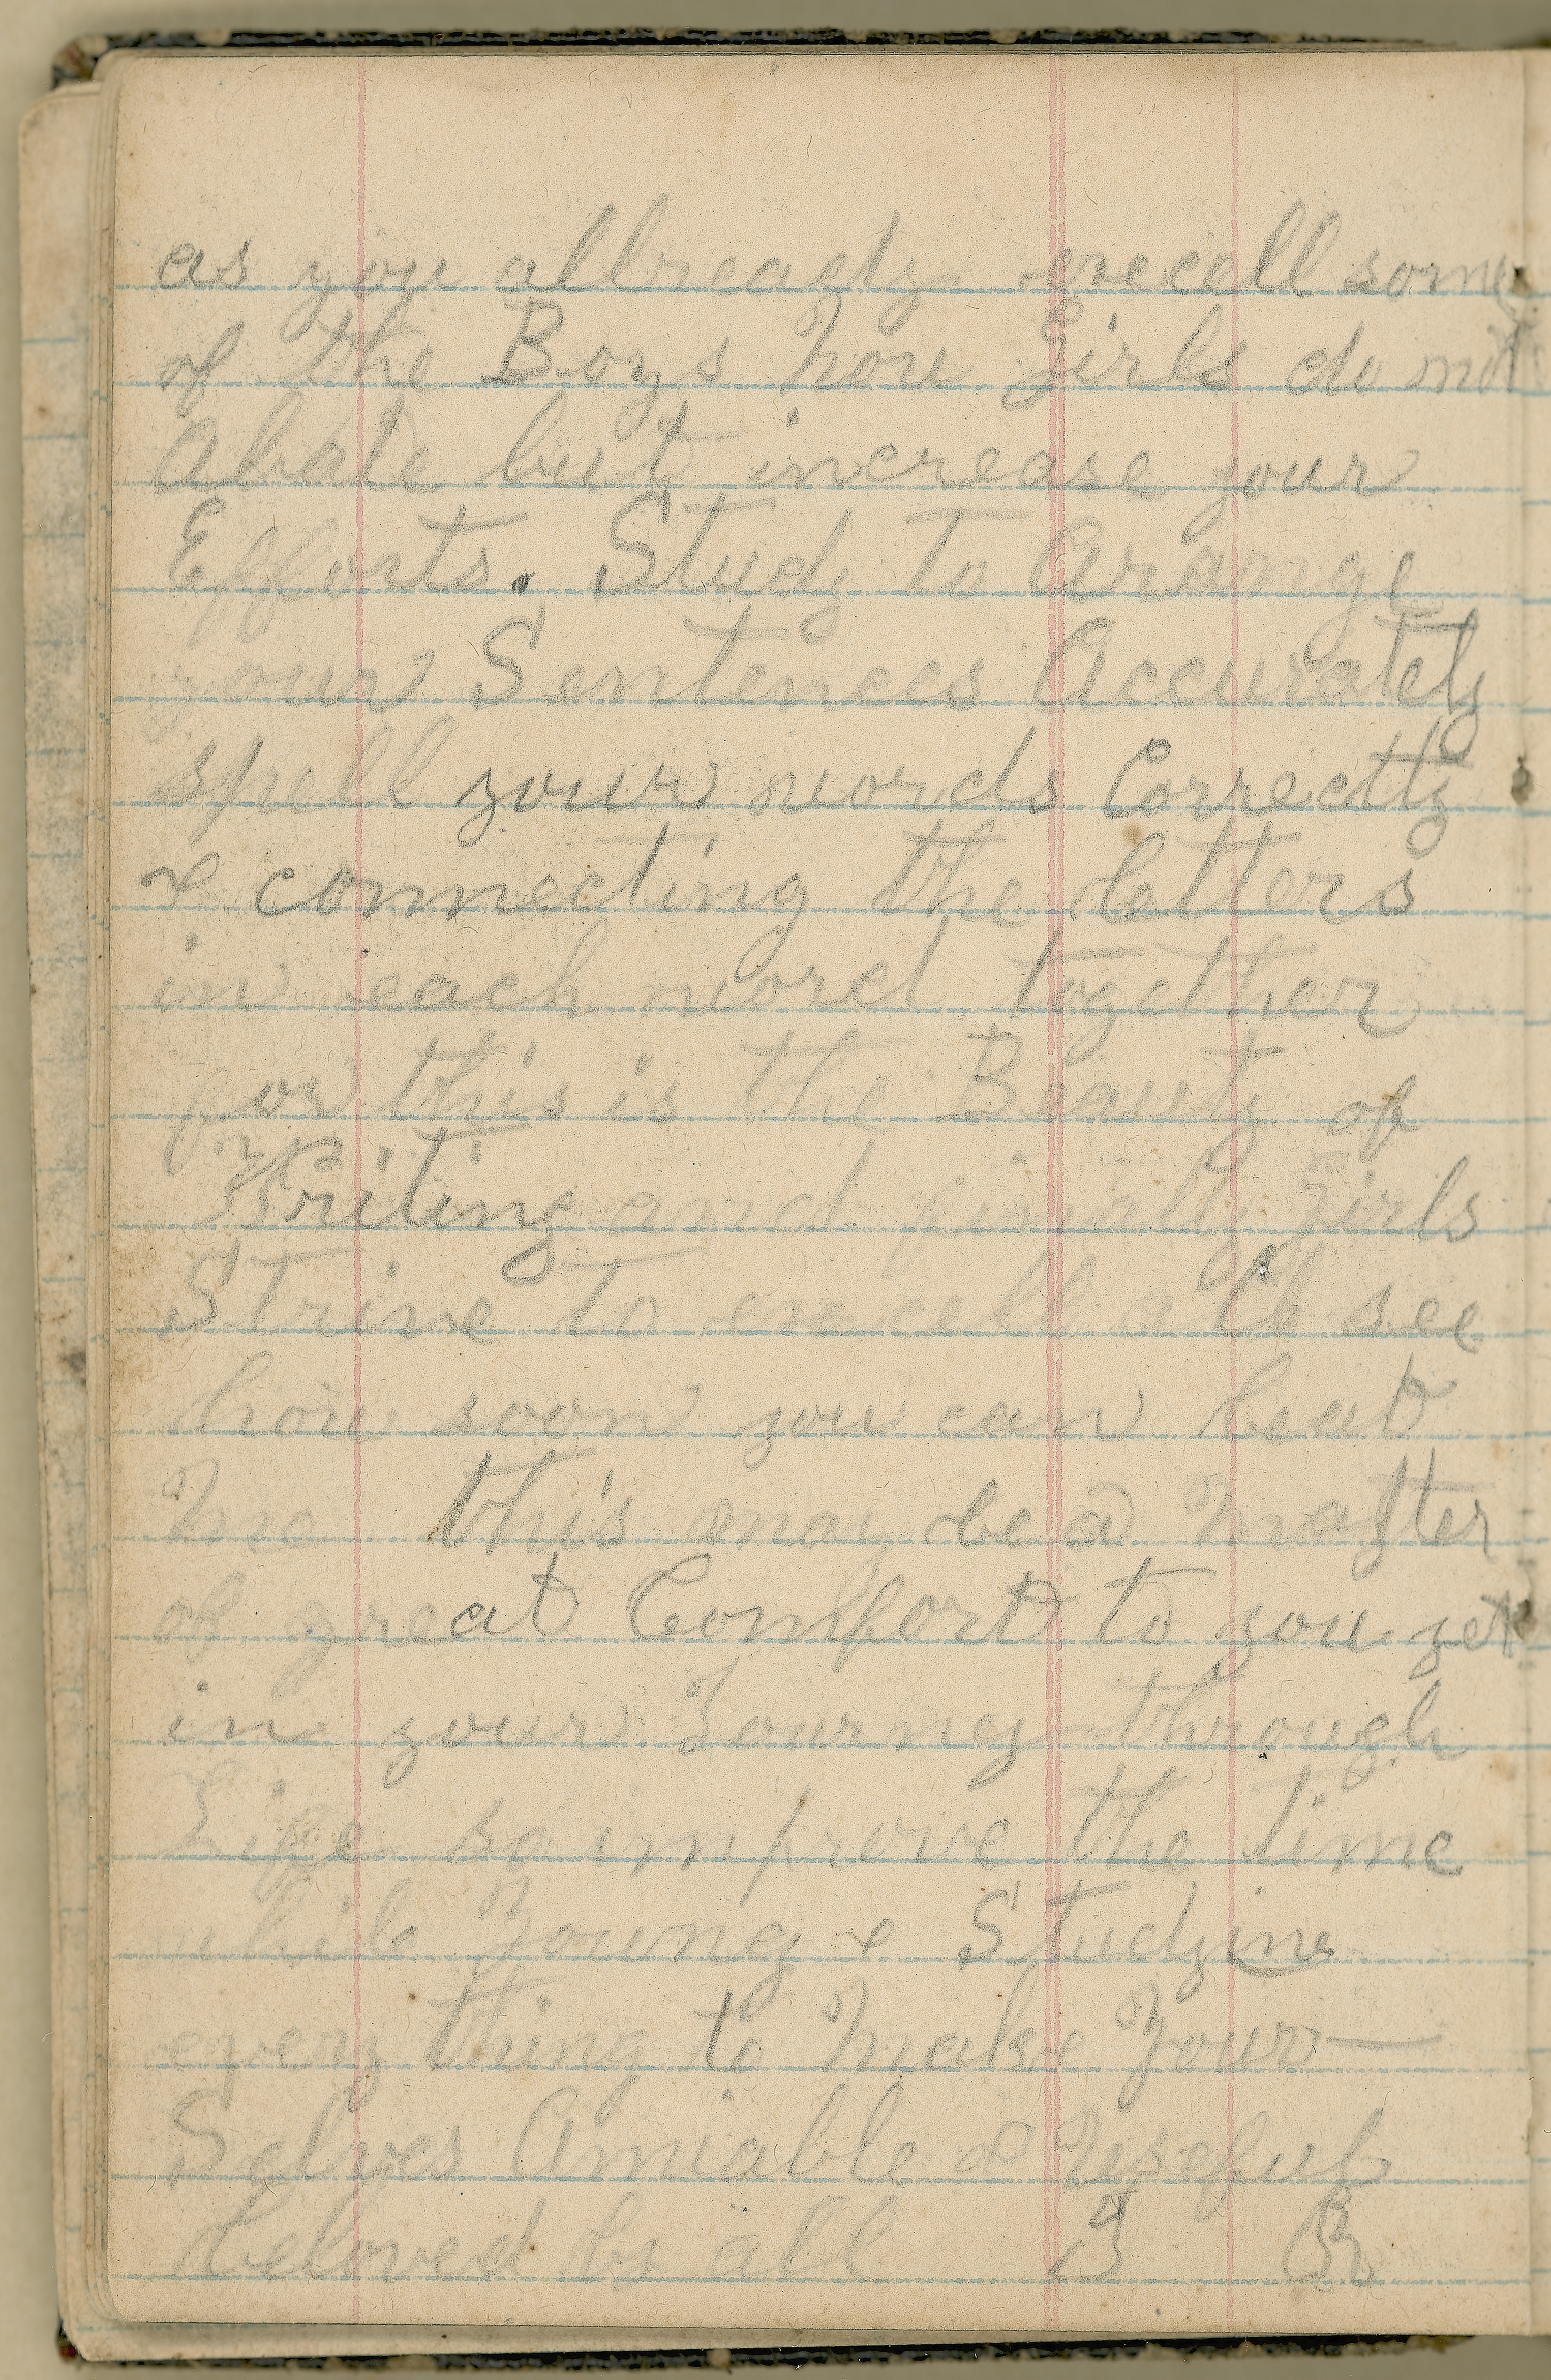 as you allready excell some
of the Boys now girls do not
Abate but increase your
Efforts. Study to Arrange
your Sentences Accurately
spell your words Correctly
& connecting the letters
in each word together
for this is the Beauty of
Writing and finally girls
Strive to excell & to see
how soon you can beat
me this may be a matter
of great Comfort to you yet
in your Journey through
Life so improve the time
while Young & Studying
every thing to make Your—
Selves Amiable & Usefull
beloved by all